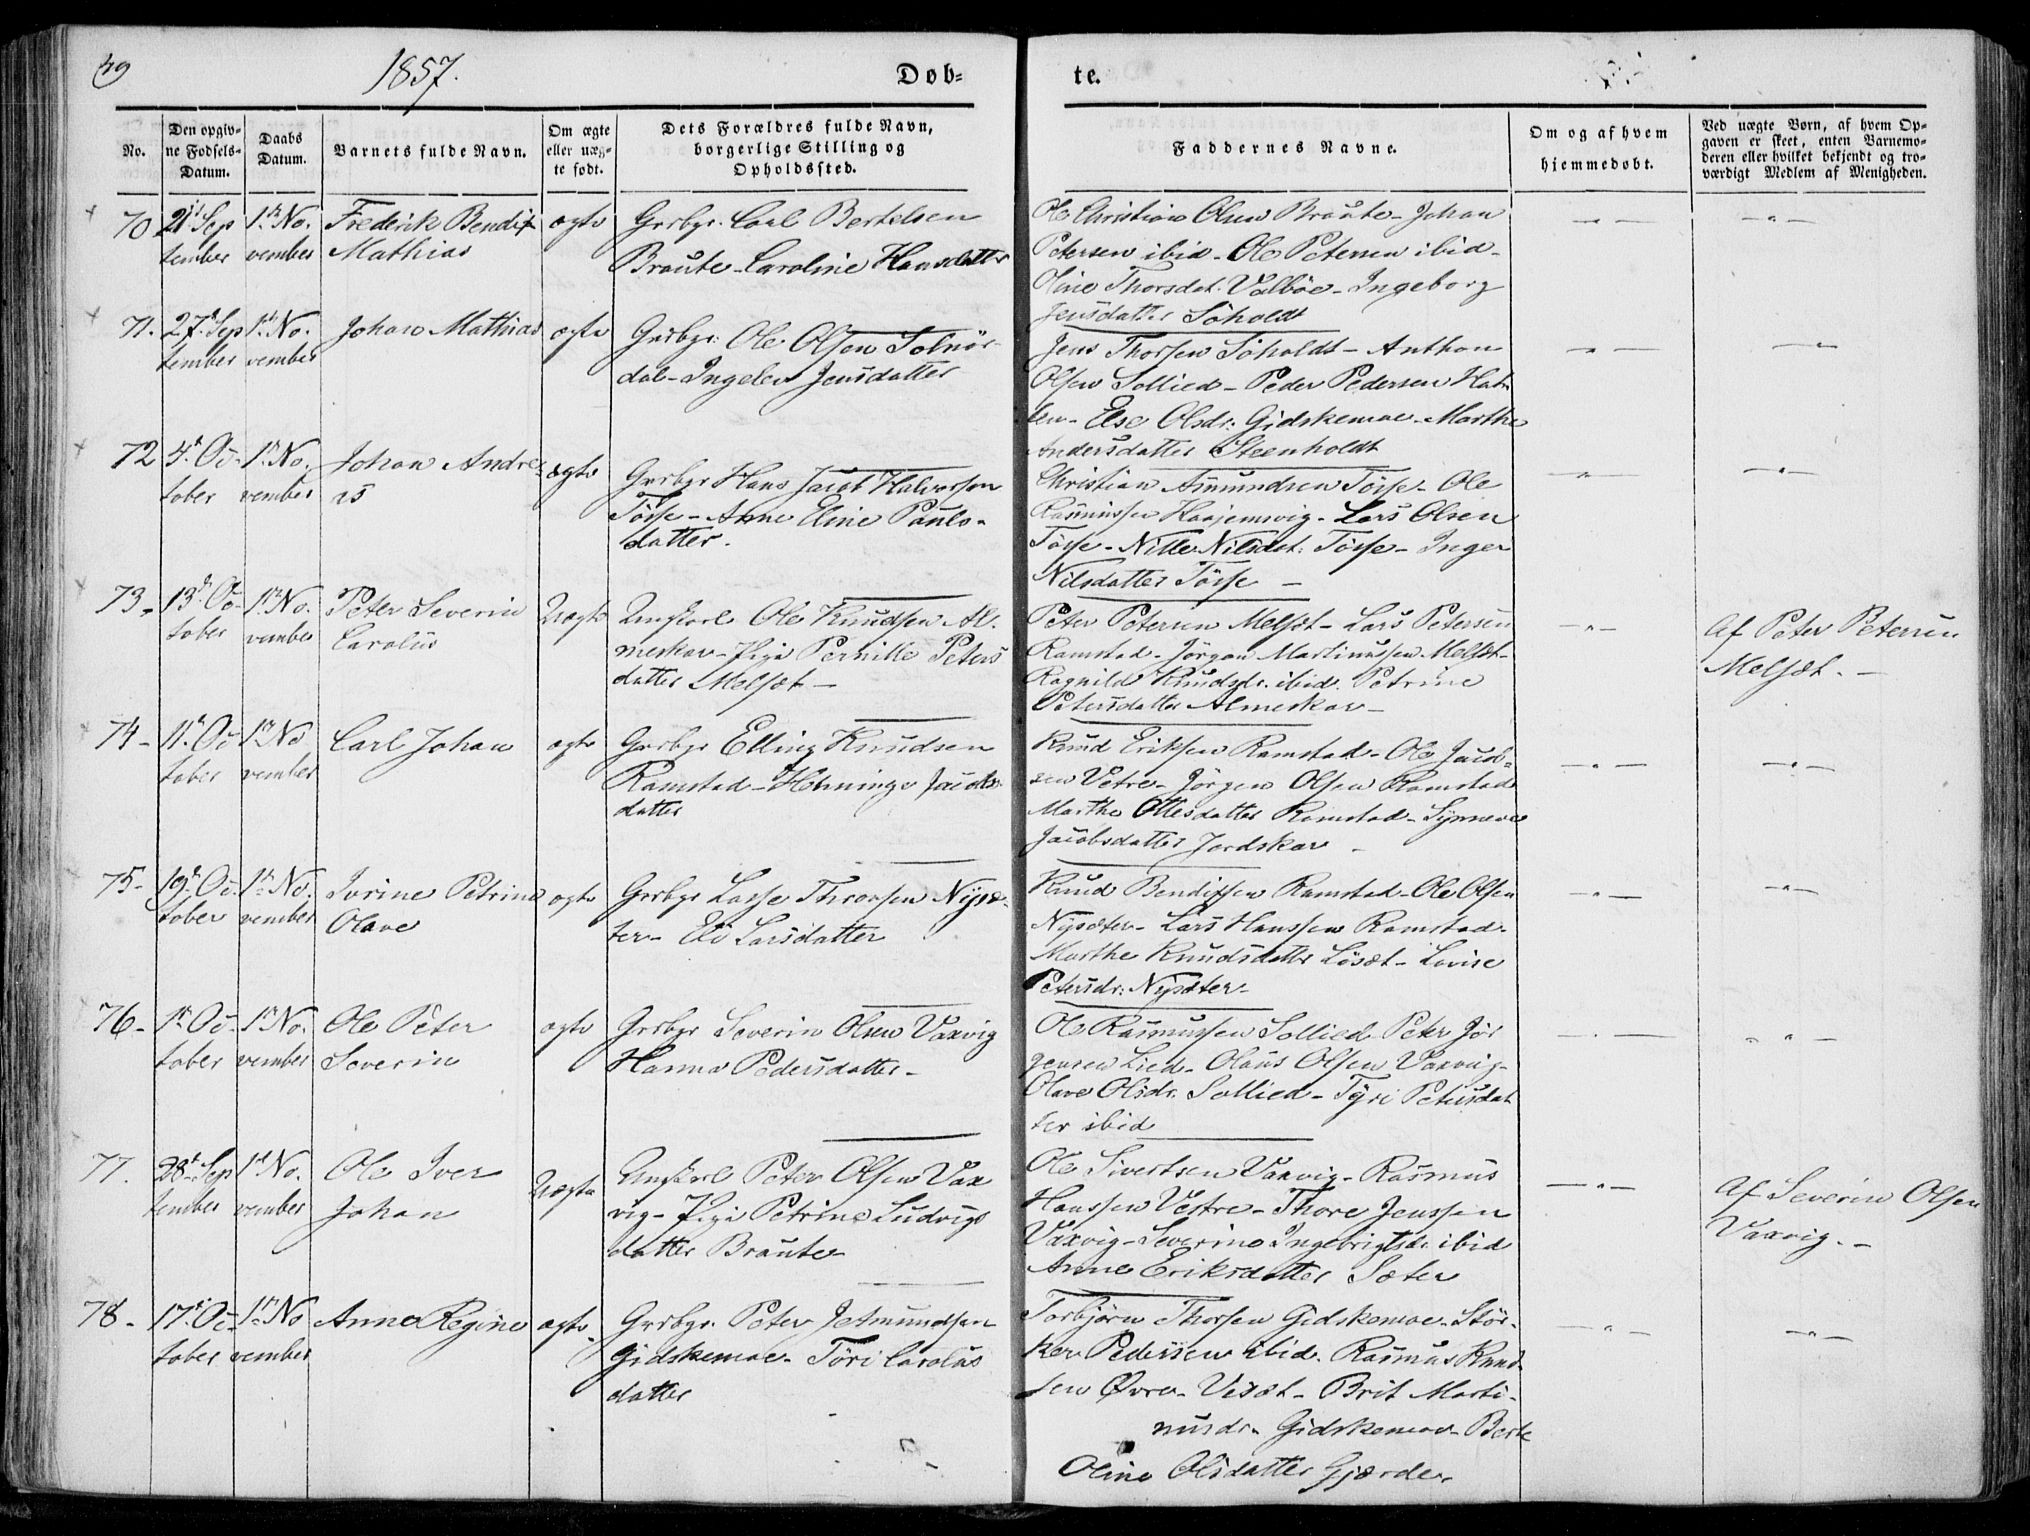 49
1857.
Døb-
te.
No.
Den opgiv-
ne Fødsels-
Datum.
Daabs
Datum.
Barnets fulde Navn.
Om ægte
eller uæg-
te født.
Dets Forældres fulde Navn,
borgerlige Stilling og
Opholdssted.
Faddernes Navne.
Om og af hvem
hjemmedøbt.
Ved uægte Børn, af hvem Op-
gaven er skeet, enten Barnemo-
deren eller hvilket bekjendt og tro-
værdigt Medlem af Menigheden.
70 21 Sep 1 No. Frederik Bendix ægte Grbgr. Carl Bertelsen
tember vember Mathias Braute - Caroline Hansdatter
Ole Christian Olsen Braute - Johan
Petersen ibid - Ole Petersen ibid -
Oline Thorsdat. Valbøe - Ingeborg
Jensdatter Søholdt
71. 27 Sep 1 No. Johan Mathias ægte Grbgr. Ole Olsen Solnør-
tember vember dal - Ingeles Jensdatter
Jens Thorsen Søholdt - Anthon
Olsen Sollied - Peder Pedersen Hat-
len - Else Olsdr: Gidskemoe - Marthe
Andersdatter Steenholdt
72 4 Oc- 1 No. Johan Andre- ægte Grbgr Hans Jacob Halvorsen
tober vember as Tøsse - Anne Eline Pauls-
datter.
Christian Amundsen Tøsse - Ole
Rasmussen Haajemsvig - Lars Olsen
Tøsse - Nille Nilsdat: Tøsse - Inger
Nilsdatter Tøsse -
73 - 13 Oc- 1 No. Peter Severin Uægte Ungkarl Ole Knudsen Al-
tober vember Carolus meskar - Pige Pernille Peters
datter Melsæt -
Peter Petersen Melsæt - Lars Petersen
Ramstad - Jørgen Martinussen Melsæt -
Ragnild Knudsdr. ibid. Petrine
Petersdatter Almeskar -
Af Peter Petersen
Melsæt. -
74 - 11 Oc- 1 No Carl Johan ægte Grbgr Elling Knudsen
tober vember Ramstad - Henninge Jacobs-
datter
Knud Eriksen Ramstad - Ole Jacob-
sen Vetre - Jørgen Olsen Ramstad
Marthe Ottesdatter Ramstad - Synneve
Jacobsdatter Jordskar -
75 - 19 Oc- 1 No. Ivrine Petrine ægte Grbgr Lasse Thoresen Nysæ-
tober vember Olave ter - Eli Larsdatter
Knud Bendixsen Ramstad - Ole Olsen
Nysæter - Lars Hanssen Ramstad -
Marthe Knudsdatter Løsæt - Lovise
Petersdr: Nysæter -
76 - 1 Oc- 1 No. Ole Peter ægte Grbgr Severin Olsen Vaxvig
tober vember Severin Hanna Pedersdatter -
Ole Rasmussen Sollied - Peter Jør
gensen Lied - Olaus Olsen Vaxvig -
Olave Olsdr. Sollied - Tyri Petersdat
ter ibid
77. 28 Sep 1 No. Ole Iver Uægte Ungkarl Peter Olsen Vax
tember vember Johan vig - Pige Petrine Ludvigs
datter Braute
Ole Sivertsen Vaxvig - Rasmus
Hanssen Vestre - Thore Jenssen
Vaxvig - Severine Ingebrigtsdr. ibid
Anne Eriksdatter Sæter
Af Severin Olsen
Vaxvig. -
78 - 17 Oc- 1 No Anne Regine ægte Grbgr. Peter Jetmundsen
tober vember Gidskemoe - Tøri Carolus
datter
Torbjørn Thorsen Gidskemoe - Stør-
ker Pederssen ibid. Rasmus Knud-
sen Øvre - Visæt - Brit Marti-
nusdr - Gidskemoe - Berte
Oline Olsdatter Gjærde.